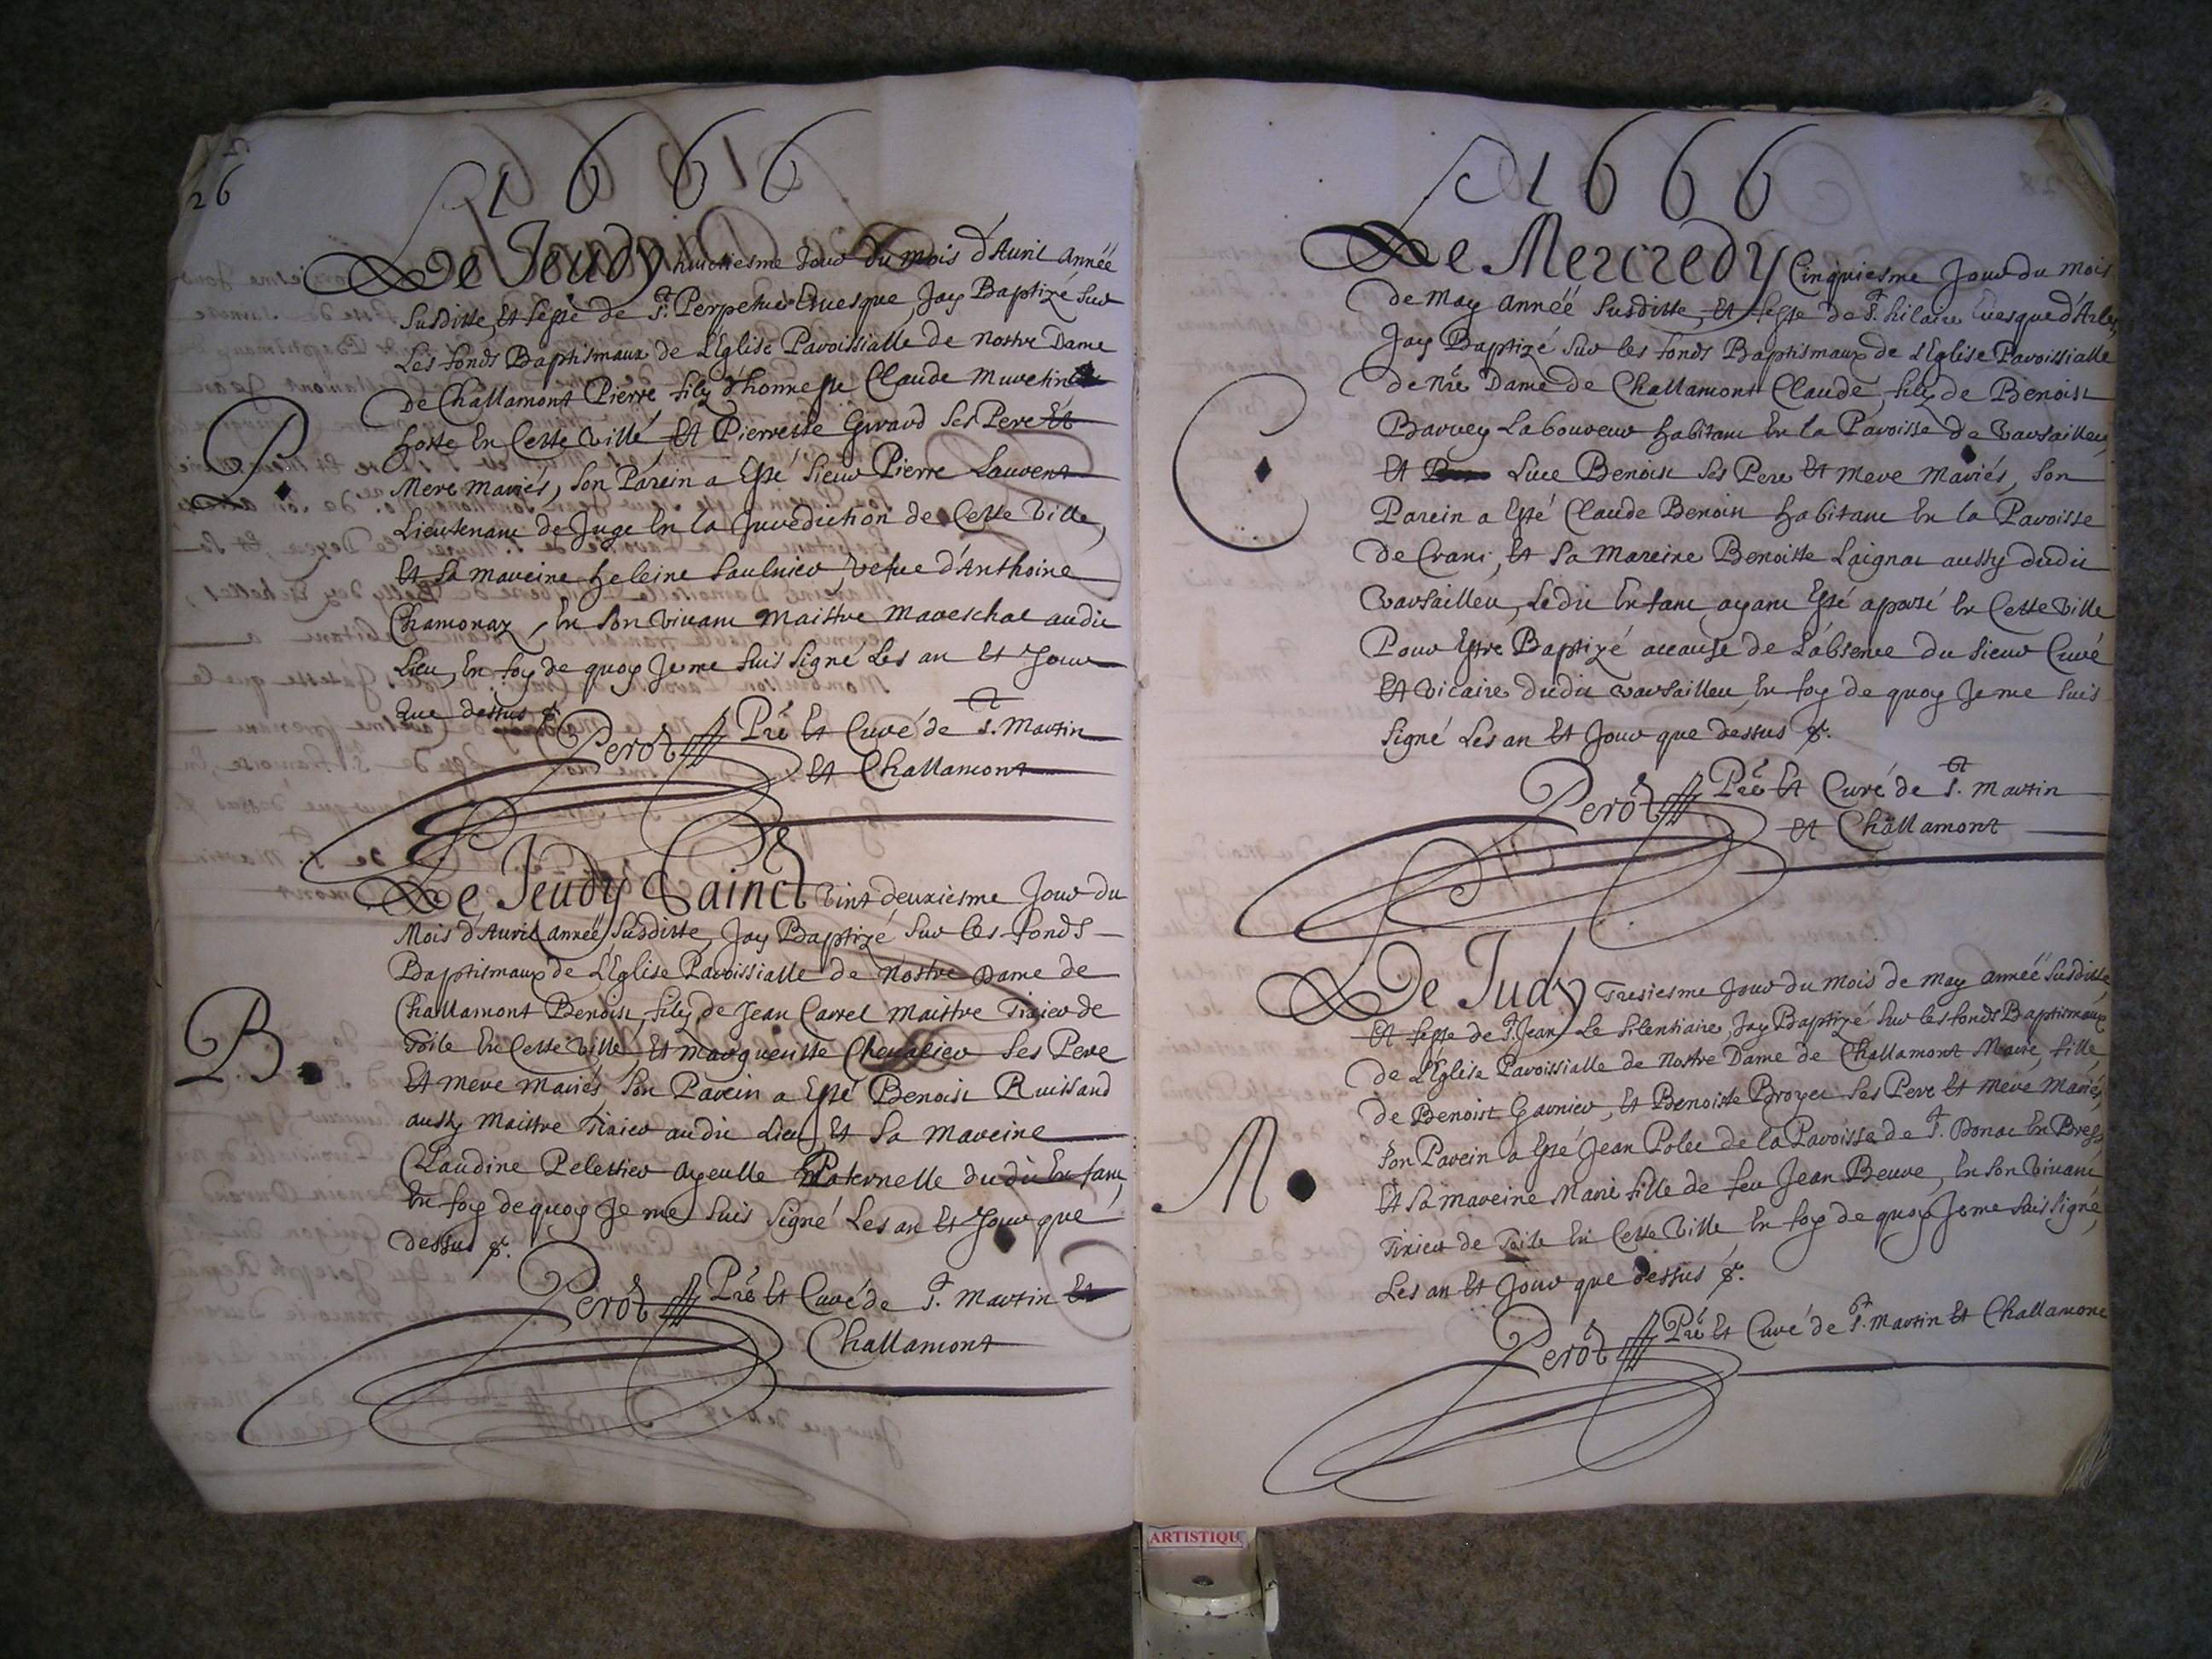 26
1666
Le Jeudy huictiesme Jour du mois d'Auril année
Susditte, Et feste de St. Perpetue Euesque, Jay Baptizé sur
Les fonds Baptismaux de L'Eglise Paroissialle de Nostre Dame
De Challamont Pierre filz d'honneste Claude Muretin
hoste En Cette Ville, Et Pierrette Girard ses Pere Et
Mere mariés, son Parein a Esté sieur Pierre Laurent
Lieutenant de Juge En la Jurediction de Cette Ville,
Et sa mareine heleine Saulnier, vefue d'Anthoine
Chamonaz, En son Viuant Maistre Mareschal audit
Lieu, En foy de quoy Je me suis signé Les an Et Jour
Que dessus &.
Perot Pre Et Curé de St. Martin
Et Challamont
P.
Le Jeudy Sainct Vint deuxiesme Jour du
Mois d'Auril année Susditte, Jay Baptizé sur les fonds
Baptismaux de L'Eglise Paroissialle de Nostre Dame de
Challamont Benoist, filz de Jean Carrel Maistre Tixier de
Toile En Cette Ville, Et Margueritte Cheualier ses Pere
Et mere mariés, son Parein a Esté Benoist Ruissard
aussy Maistre Tixier audit Lieu, Et sa mareine
Claudine Peletier ayeulle Paternelle dudit Enfant,
En foy de quoy Je me suis signé Les an Et Jour que
dessus &.
B.
Perot Pre Et Curé de St. Martin Et
Challamont
1666
Le Mercredy Cinquiesme Jour du mois
de May année Susditte, Et feste de St. hilaire Euesque d'Arles,
Jay Baptizé sur les fonds Baptismaux de L'Eglise Paroissialle
de Nre Dame de Challamont Claude, filz de Benoist
Barrey Laboureur habitant En la Paroisse de Varsailleu,
Et Luce Benoist ses Pere Et mere mariés, son
Parein a Esté Claude Benoist habitant En la Paroisse
de Crans, Et sa Mareine Benoitte Laignat aussy dudit
Varsailleu, Ledit Enfant ayant Esté aporté En Cette Ville
Pour Estre Baptizé accause de L'absence du sieur Curé
Et Vicaire dudit Varsailleu, En foy de quoy Je me suis
signé Les an Et Jour que dessus &.
C
Perot Pre Et Curé de St. Martin
Et Challamont
Le Judy Tresiesme Jour du Mois de May année Susditte,
Et feste de St. Jean Le Silentiaire, Jay Baptizé sur les fonds Baptismaux
de L'Eglise Paroissialle de Nostre Dame de Challamont Marie, fille
de Benoist Garnier, Et Benoiste Broyer ses Pere Et mere mariés,
son Parein a Esté Jean Polet de la Paroisse de St. Donac En Bresse
Et sa mareine Marie fille de feu Jean Beuve, En son Viuant
Tixier de Toile En Cette Ville En foy de quoy Je me suis signé,
Les an Et Jour que dessus &.
M.
Perot Pre Et Curé de St. Martin Et Challamont
ARTISTIQU